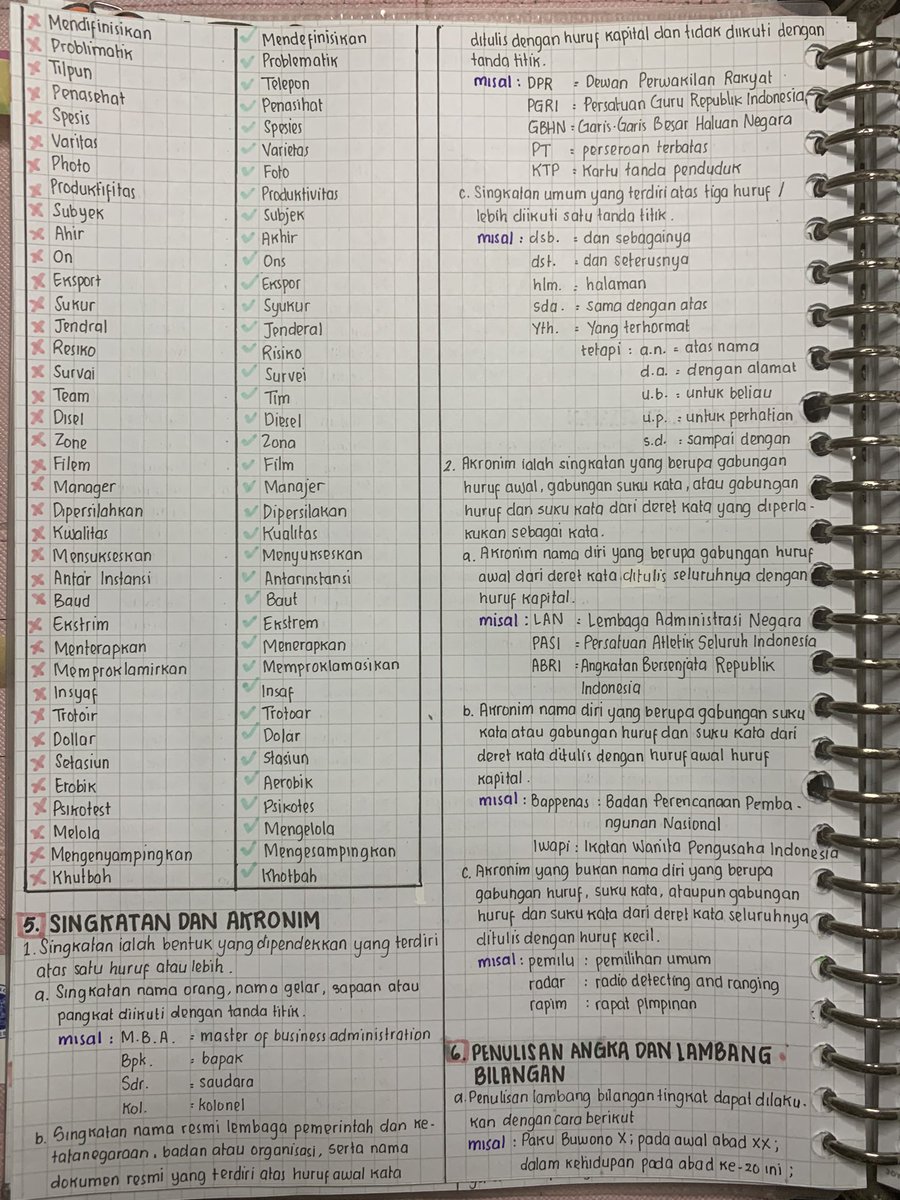 Mendifinisikan Mendefinisikan
Problimatik Problematik
Tilpun Telepon
Penasehat Penasihat
Spesis Spesies
Varitas Varietas
Photo Foto
Produktifitas Produktivitas
Subyek Subjek
Ahir Akhir
On Ons
Eksport Ekspor
Sukur Syukur
Jendral Jenderal
Resiko Risiko
Survai Survei
Team Tim
Disel Diesel
Zone Zona
Filem Film
Manager Manajer
Dipersilahkan Dipersilakan
Kwalitas Kualitas
Mensukseskan Menyukseskan
Antar Instansi Antarinstansi
Baud Baut
Ekstrim Ekstrem
Menterapkan Menerapkan
Memproklamirkan Memproklamasikan
Insyaf Insaf
Trotoir Trotoar
Dollar Dolar
Setasiun Stasiun
Erobik Aerobik
Psikotest Psikotes
Melola Mengelola
Mengenyampingkan Mengesampingkan
Khutbah Khotbah
5. SINGKATAN DAN AKRONIM
1. Singkatan ialah bentuk yang dipendekkan yang terdiri
atas satu huruf atau lebih.
a. Singkatan nama orang, nama gelar, sapaan atau
pangkat diikuti dengan tanda titik.
misal : M.B.A. = master of business administration
Bpk. = bapak
Sdr. = saudara
Kol. = kolonel
b. Singkatan nama resmi lembaga pemerintah dan ke-
tatanegaraan, badan atau organisasi, serta nama
dokumen resmi yang terdiri atas huruf awal kata
ditulis dengan huruf kapital dan tidak diikuti dengan
tanda titik.
misal : DPR = Dewan Perwakilan Rakyat
PGRI = Persatuan Guru Republik Indonesia
GBHN = Garis-Garis Besar Haluan Negara
PT = perseroan terbatas
KTP = Kartu tanda penduduk
c. Singkatan umum yang terdiri atas tiga huruf /
lebih diikuti satu tanda titik.
misal : dsb. = dan sebagainya
dst. = dan seterusnya
hlm. = halaman
sda. = sama dengan atas
Yth. = Yang terhormat
tetapi : a.n. = atas nama
d.a. = dengan alamat
u.b. = untuk beliau
u.p. = untuk perhatian
s.d. = sampai dengan
2. Akronim ialah singkatan yang berupa gabungan
huruf awal, gabungan suku kata, atau gabungan
huruf dan suku kata dari deret kata yang diperla-
kukan sebagai kata.
a. Akronim nama diri yang berupa gabungan huruf
awal dari deret kata ditulis seluruhnya dengan
huruf kapital.
misal : LAN = Lembaga Administrasi Negara
PASI = Persatuan Atletik Seluruh Indonesia
ABRI = Angkatan Bersenjata Republik
Indonesia
b. Akronim nama diri yang berupa gabungan suku
kata atau gabungan huruf dan suku kata dari
deret kata ditulis dengan huruf awal huruf
kapital.
misal : Bappenas : Badan Perencanaan Pemba-
ngunan Nasional
Iwapi : Ikatan Wanita Pengusaha Indonesia
c. Akronim yang bukan nama diri yang berupa
gabungan huruf, suku kata, ataupun gabungan
huruf dan suku kata dari deret kata seluruhnya
ditulis dengan huruf kecil.
misal : pemilu : pemilihan umum
radar : radio detecting and ranging
rapim : rapat pimpinan
6. PENULISAN ANGKA DAN LAMBANG
BILANGAN
a. Penulisan lambang bilangan tingkat dapat dilaku-
kan dengan cara berikut
misal : Paku Buwono X; pada awal abad XX;
dalam kehidupan pada abad ke-20 ini;